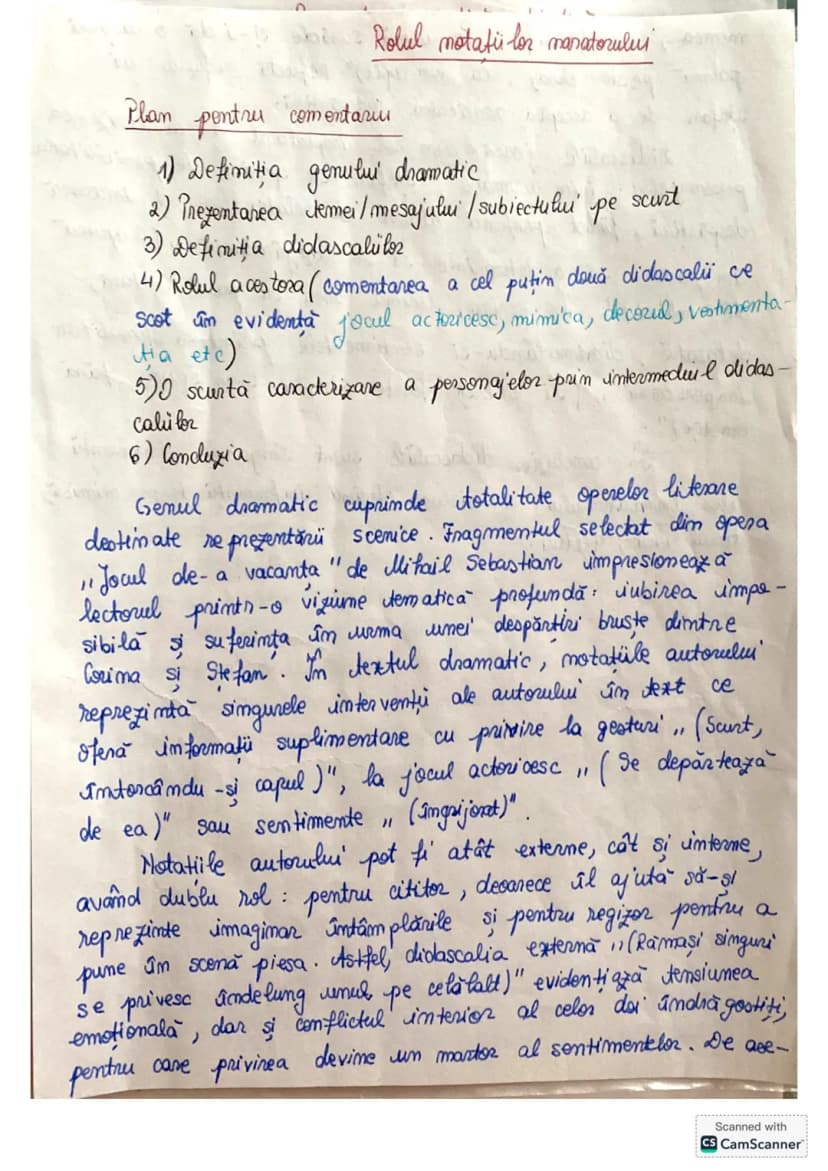 Rolul notațiilor naratorului
Plan pentru comentariu
1) Definiția genului dramatic
2) Prezentarea temei/mesajului/subiectului pe scurt
3) Definiția didascaliilor
4) Rolul acestora (comentarea a cel puțin două didascalii ce
scot în evidență jocul actoricesc, mimica, decorul, vestimenta-
ția etc)
5) O scurtă caracterizare a personajelor prin intermediul didas-
caliilor
6) Concluzia
Genul dramatic cuprinde totalitate operelor literare
destinate reprezentării scenice. Fragmentul selectat din opera
„Jocul de-a vacanța" de Mihail Sebastian impresionează
lectorul printr-o viziune tematică profundă: iubirea impo-
sibilă și suferința în urma unei despărțiri bruște dintre
Corina și Ștefan. În textul dramatic, notațiile autorului
reprezintă singurele intervenții ale autorului în text ce
oferă informații suplimentare cu privire la gesturi „(Scurt,
întorcându-și capul)", la jocul actoricesc „(Se depărtează
de ea)" sau sentimente „(îngrijorat)".
Notațiile autorului pot fi atât externe, cât și interne,
având dublu rol: pentru cititor, deoarece îl ajută să-și
reprezinte imaginar întâmplările și pentru regizor pentru a
pune în scenă piesa. Astfel, didascalia externă „(Rămași singuri
se privesc îndelung unul pe celălalt)" evidențiază tensiunea
emoțională, dar și conflictul interior al celor doi îndrăgostiți,
pentru care privirea devine un martor al sentimentelor. De ace-
Scanned with
CS CamScanner